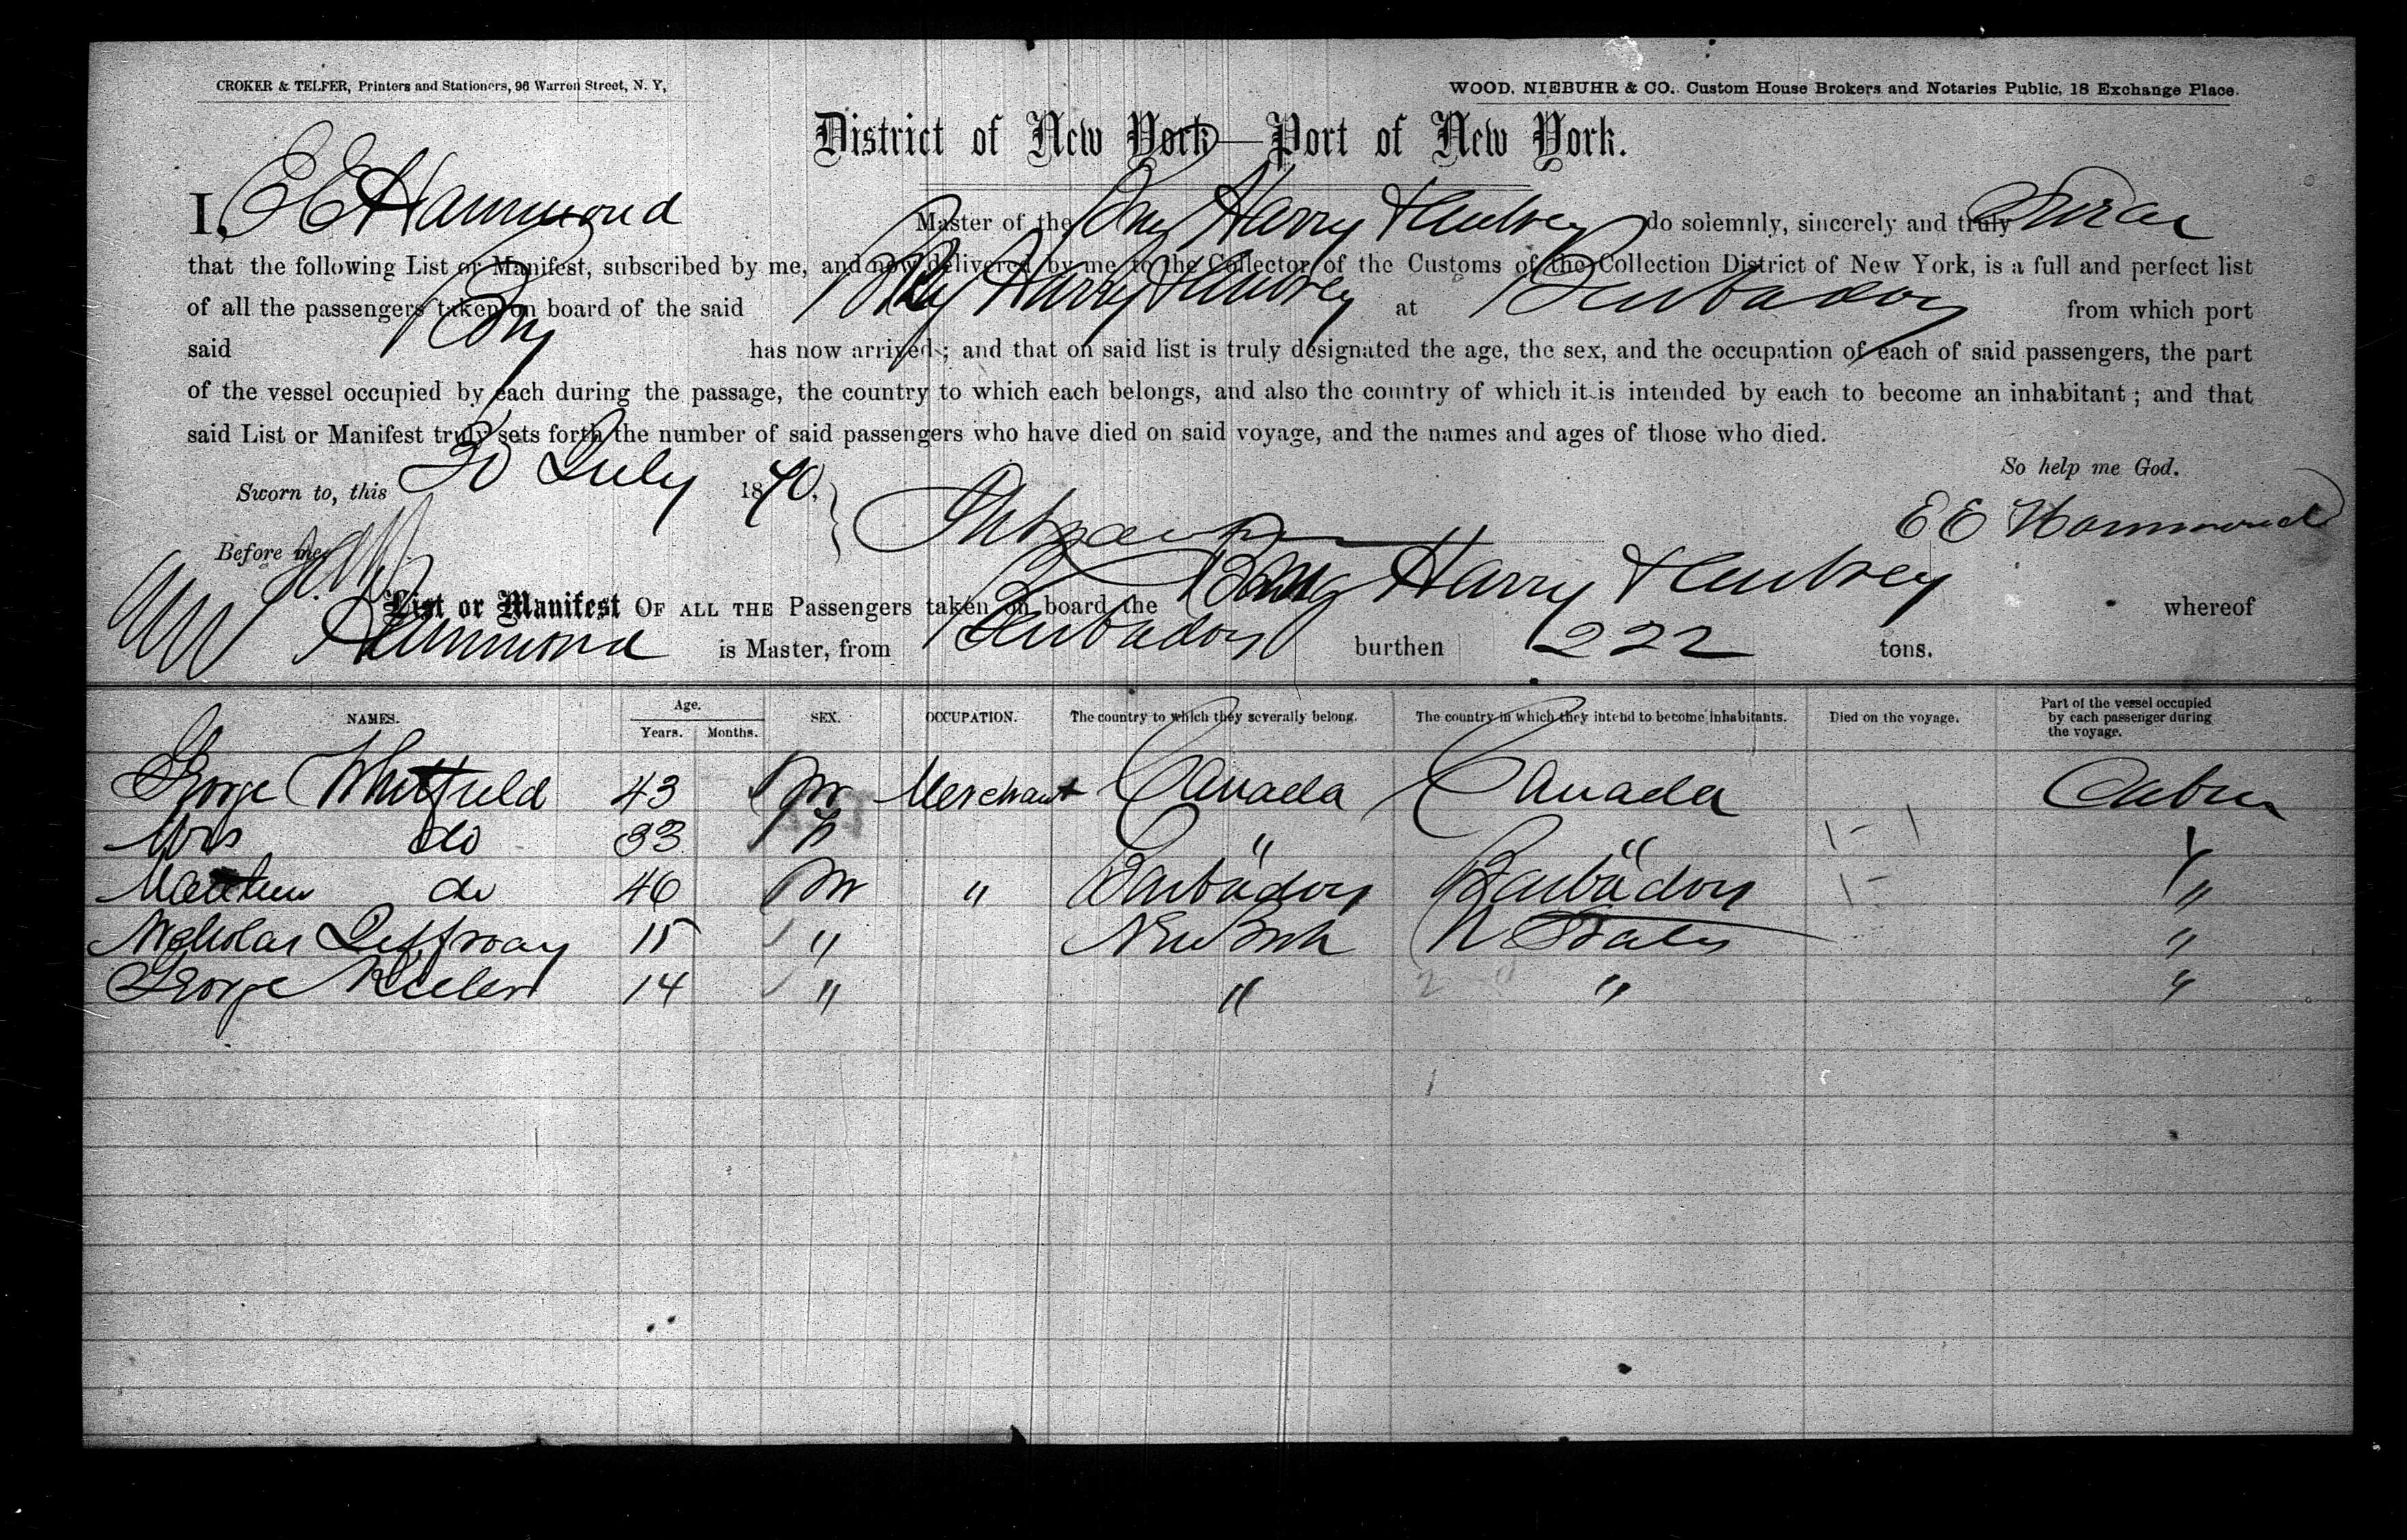 CROKER & TELFER, Printers and Stationers, 96 Warren Street, N. Y,
WOOD, NIEBUHR & CO., Custom House Brokers and Notaries Public, 18 Exchange Place.
District of New York—Port of New York.
I, E E Hammond Master of the Brig Harry & Aubrey do solemnly, sincerely and truly Swear
that the following List or Manifest, subscribed by me, and now delivered by me to the Collector of the Customs of the Collection District of New York, is a full and perfect list
of all the passengers taken on board of the said Brig Harry & Aubrey at Barbados from which port
said Brig has now arrived; and that on said list is truly designated the age, the sex, and the occupation of each of said passengers, the part
of the vessel occupied by each during the passage, the country to which each belongs, and also the country of which it is intended by each to become an inhabitant; and that
said List or Manifest truly sets forth the number of said passengers who have died on said voyage, and the names and ages of those who died.
So help me God.
Sworn to, this 30 July 1870.
E E Hammond
Before me,
List or Manifest OF ALL THE Passengers taken on board the Brig Harry & Aubrey whereof
Hammond is Master, from Barbados burthen 222 tons.
NAMES. Age. Years. Months. SEX. OCCUPATION. The country to which they severally belong. The country in which they intend to become inhabitants. Died on the voyage. Part of the vessel occupied by each passenger during the voyage.
George Whitfield 43 M Merchant Canada Canada Cabin
Mrs do 33 F " " "
Matthew do 46 M " Barbados Barbados "
Nicholas 15 " New York U States "
George 14 " " " "